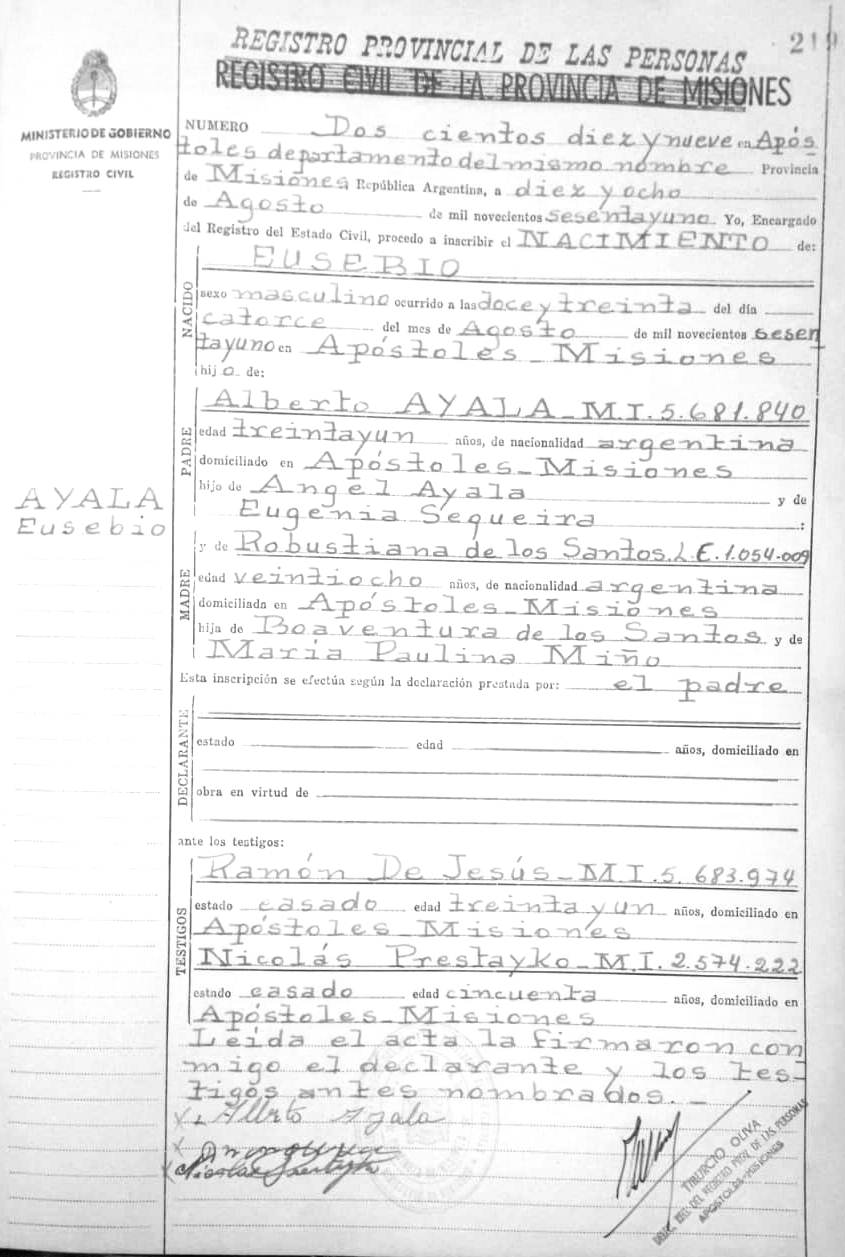 219
REGISTRO PROVINCIAL DE LAS PERSONAS
REGISTRO CIVIL DE LA PROVINCIA DE MISIONES
MINISTERIO DE GOBIERNO
PROVINCIA DE MISIONES
REGISTRO CIVIL
NUMERO Dos cientos diez y nueve en Após
toles departamento del mismo nombre Provincia
de Misiones, República Argentina, a diez y ocho
de Agosto de mil novecientos sesentayuno. Yo, Encargado
del Registro del Estado Civil, procedo a inscribir el NACIMIENTO de:
EUSEBIO
NACIDO
sexo masculino ocurrido a las doce y treinta del día
catorce del mes de Agosto de mil novecientos sesen
tayuno en Apóstoles_Misiones
hijo de:
Alberto AYALA_M.I.5.681.840
PADRE
edad treintayun años, de nacionalidad argentina
domiciliado en Apóstoles_Misiones
hijo de Angel Ayala y de
Eugenia Sequeira :
AYALA
Eusebio
y de Robustiana de los Santos.L.E.1.054.009
MADRE
edad veintiocho años, de nacionalidad argentina
domiciliada en Apóstoles_Misiones
hija de Boaventura de los Santos y de
María Paulina Miño
Esta inscripción se efectúa según la declaración prestada por: el padre
DECLARANTE
estado edad años, domiciliado en
obra en virtud de
ante los testigos:
Ramón De Jesús_M.I.5.683.974
TESTIGOS
estado casado edad treinta y un años, domiciliado en
Apóstoles_Misiones
Nicolás Prestayko_M.I.2.574.222
estado casado edad cincuenta años, domiciliado en
Apóstoles_Misiones
Leída el acta la firmaron con
migo el declarante y los tes-
tigos antes nombrados._
Alberto Ayala
TIBURCIO OLIVA
APOSTOLES-MISIONES